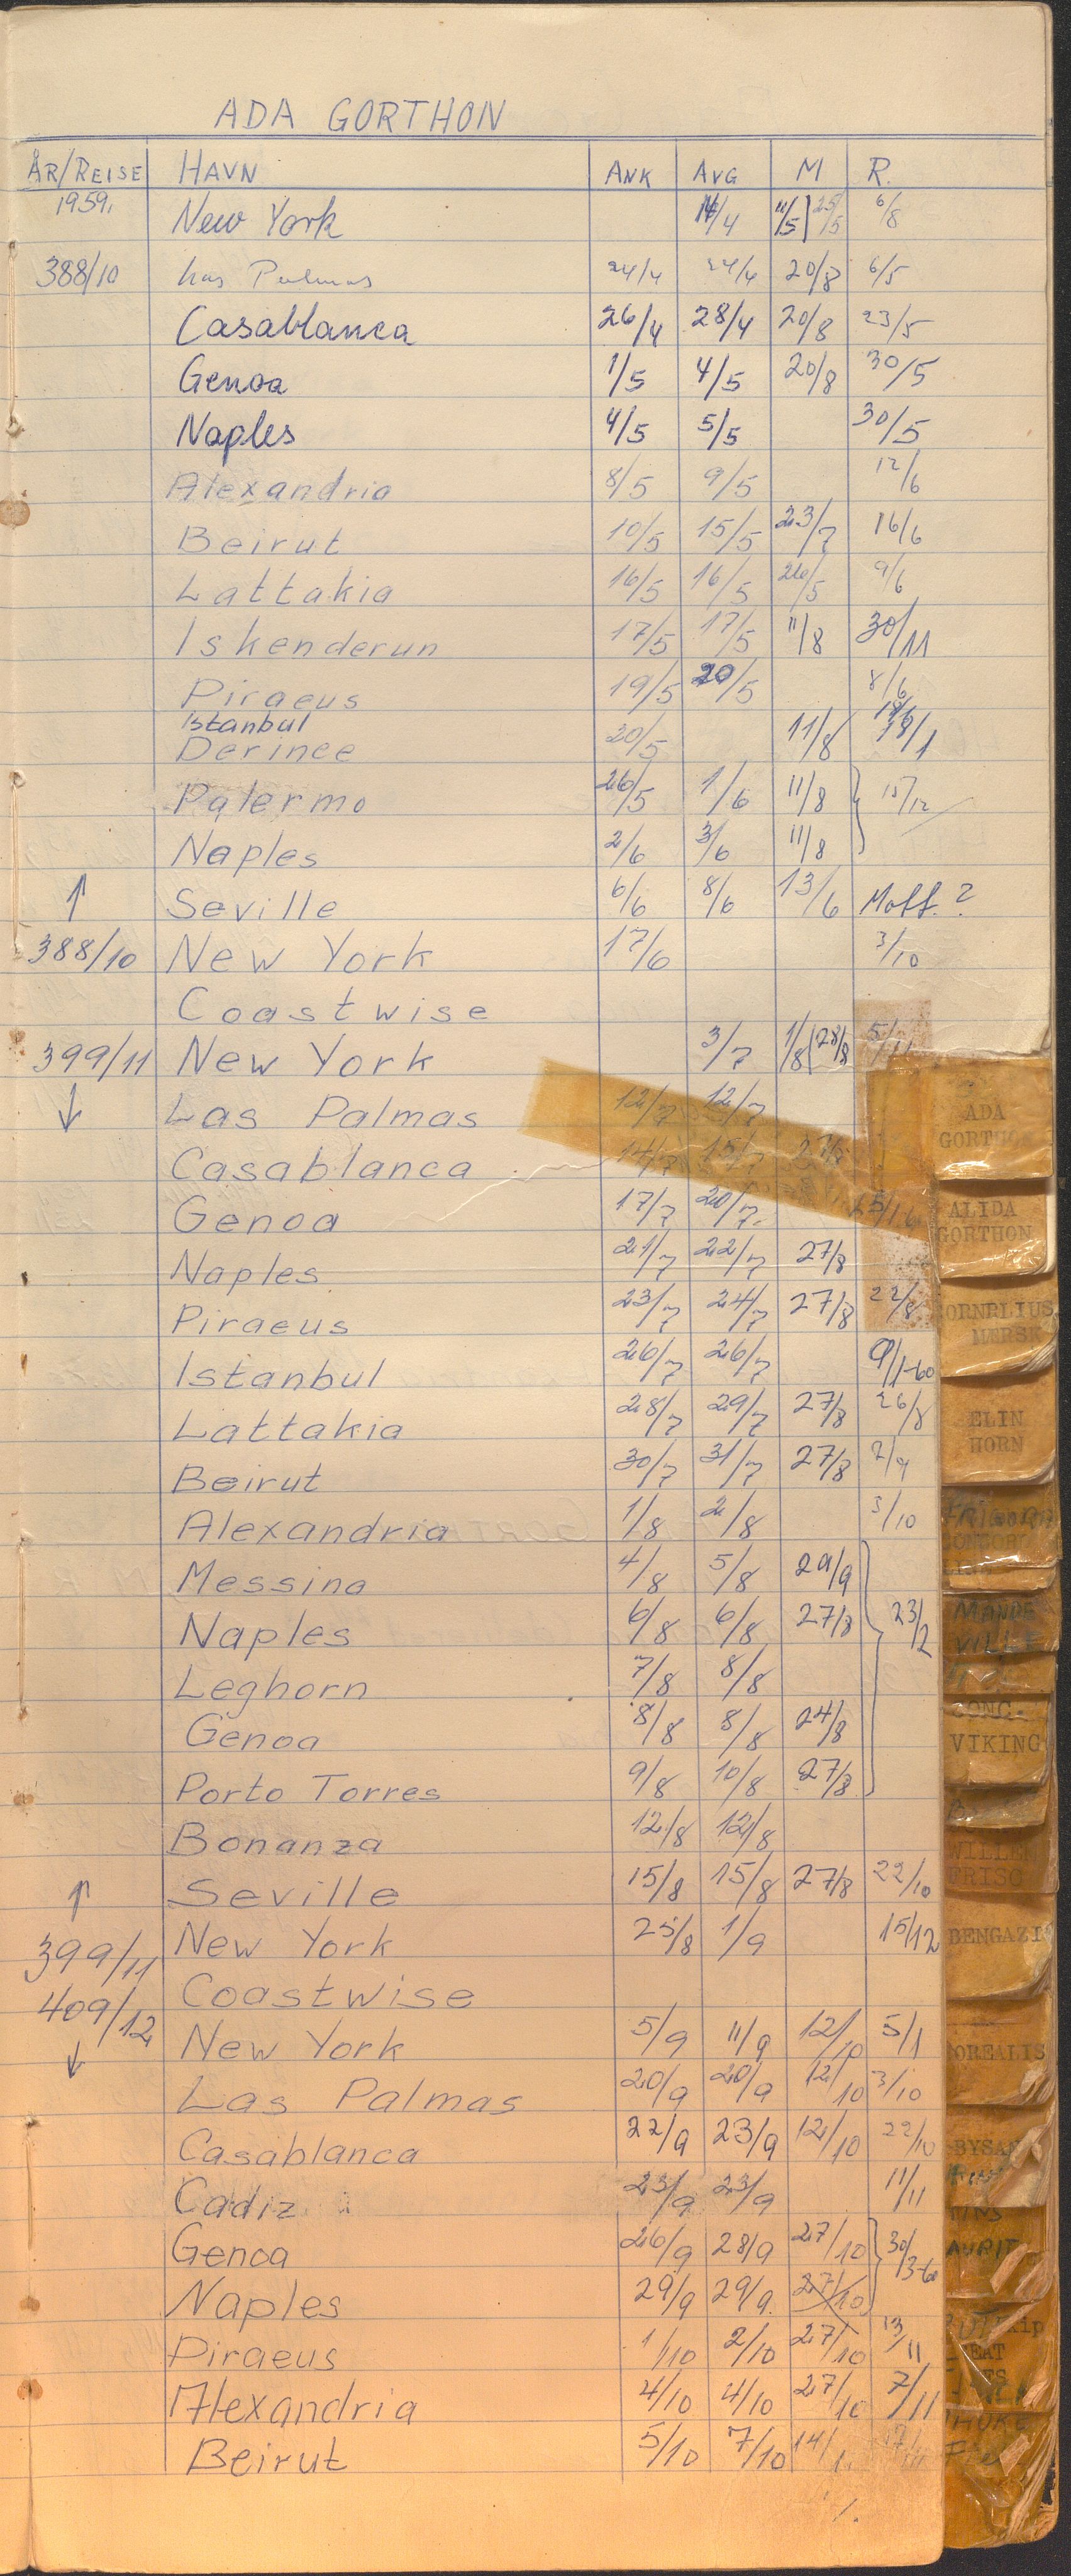 ADA GORTHON
ÅR/REISE HAVN ANK AVG M R.
1959. New York 14/4 11/5 25/5 6/8
388/10 Las Palmas 24/4 24/4 20/8 6/5
Casablanca 26/4 28/4 20/8 23/5
Genoa 1/5 4/5 20/8 30/5
Naples 4/5 5/5 30/5
Alexandria 8/5 9/5 12/6
Beirut 10/5 15/5 23/7 16/6
Lattakia 16/5 16/5 26/5 9/6
Iskenderun 17/5 17/5 11/8 30/11
Piraeus 19/5 20/5 8/6
Istanbul
Derince 20/5 11/8 18/1
Palermo 26/5 1/6 11/8 15/12
Naples 2/6 3/6 11/8
↑ Seville 6/6 8/6 13/6 Mott. ?
388/10 New York 17/6 3/10
Coastwise
399/11 New York 3/7 1/8 28/8 5/11
↓ Las Palmas 12/7 12/7
Casablanca 14/7 15/7 27/8
Genoa 17/7 20/7
Naples 21/7 22/7 27/8
Piraeus 23/7 24/7 27/8 22/8
Istanbul 26/7 26/7 9/1-60
Lattakia 28/7 29/7 27/8 26/8
Beirut 30/7 31/7 27/8 2/9
Alexandria 1/8 2/8 3/10
Messina 4/8 5/8 29/9
Naples 6/8 6/8 27/8 23/2
Leghorn 7/8 8/8
Genoa 8/8 8/8 24/8
Porto Torres 9/8 10/8 27/8
Bonanza 12/8 12/8
↑ Seville 15/8 15/8 27/8 22/10
399/11 New York 25/8 1/9 15/12
Coastwise
409/12 New York 5/9 11/9 12/10 5/1
↓ Las Palmas 20/9 20/9 12/10 3/10
Casablanca 22/9 23/9 12/10 22/10
Cadiz 23/9 23/9 11/11
Genoa 26/9 28/9 27/10 30/3-60
Naples 29/9 29/9 27/10
Piraeus 1/10 2/10 27/10 13/11
Alexandria 4/10 4/10 27/10 7/11
Beirut 5/10 7/10 14/
ADA
GORTHON
ALIDA
GORTHON
CORNELIUS
MERSK
ELIN
HORN
MANDE
VILLE
CONC.
VIKING
WILLEM
FRISO
BENGAZI
OREALIS
BYSAN